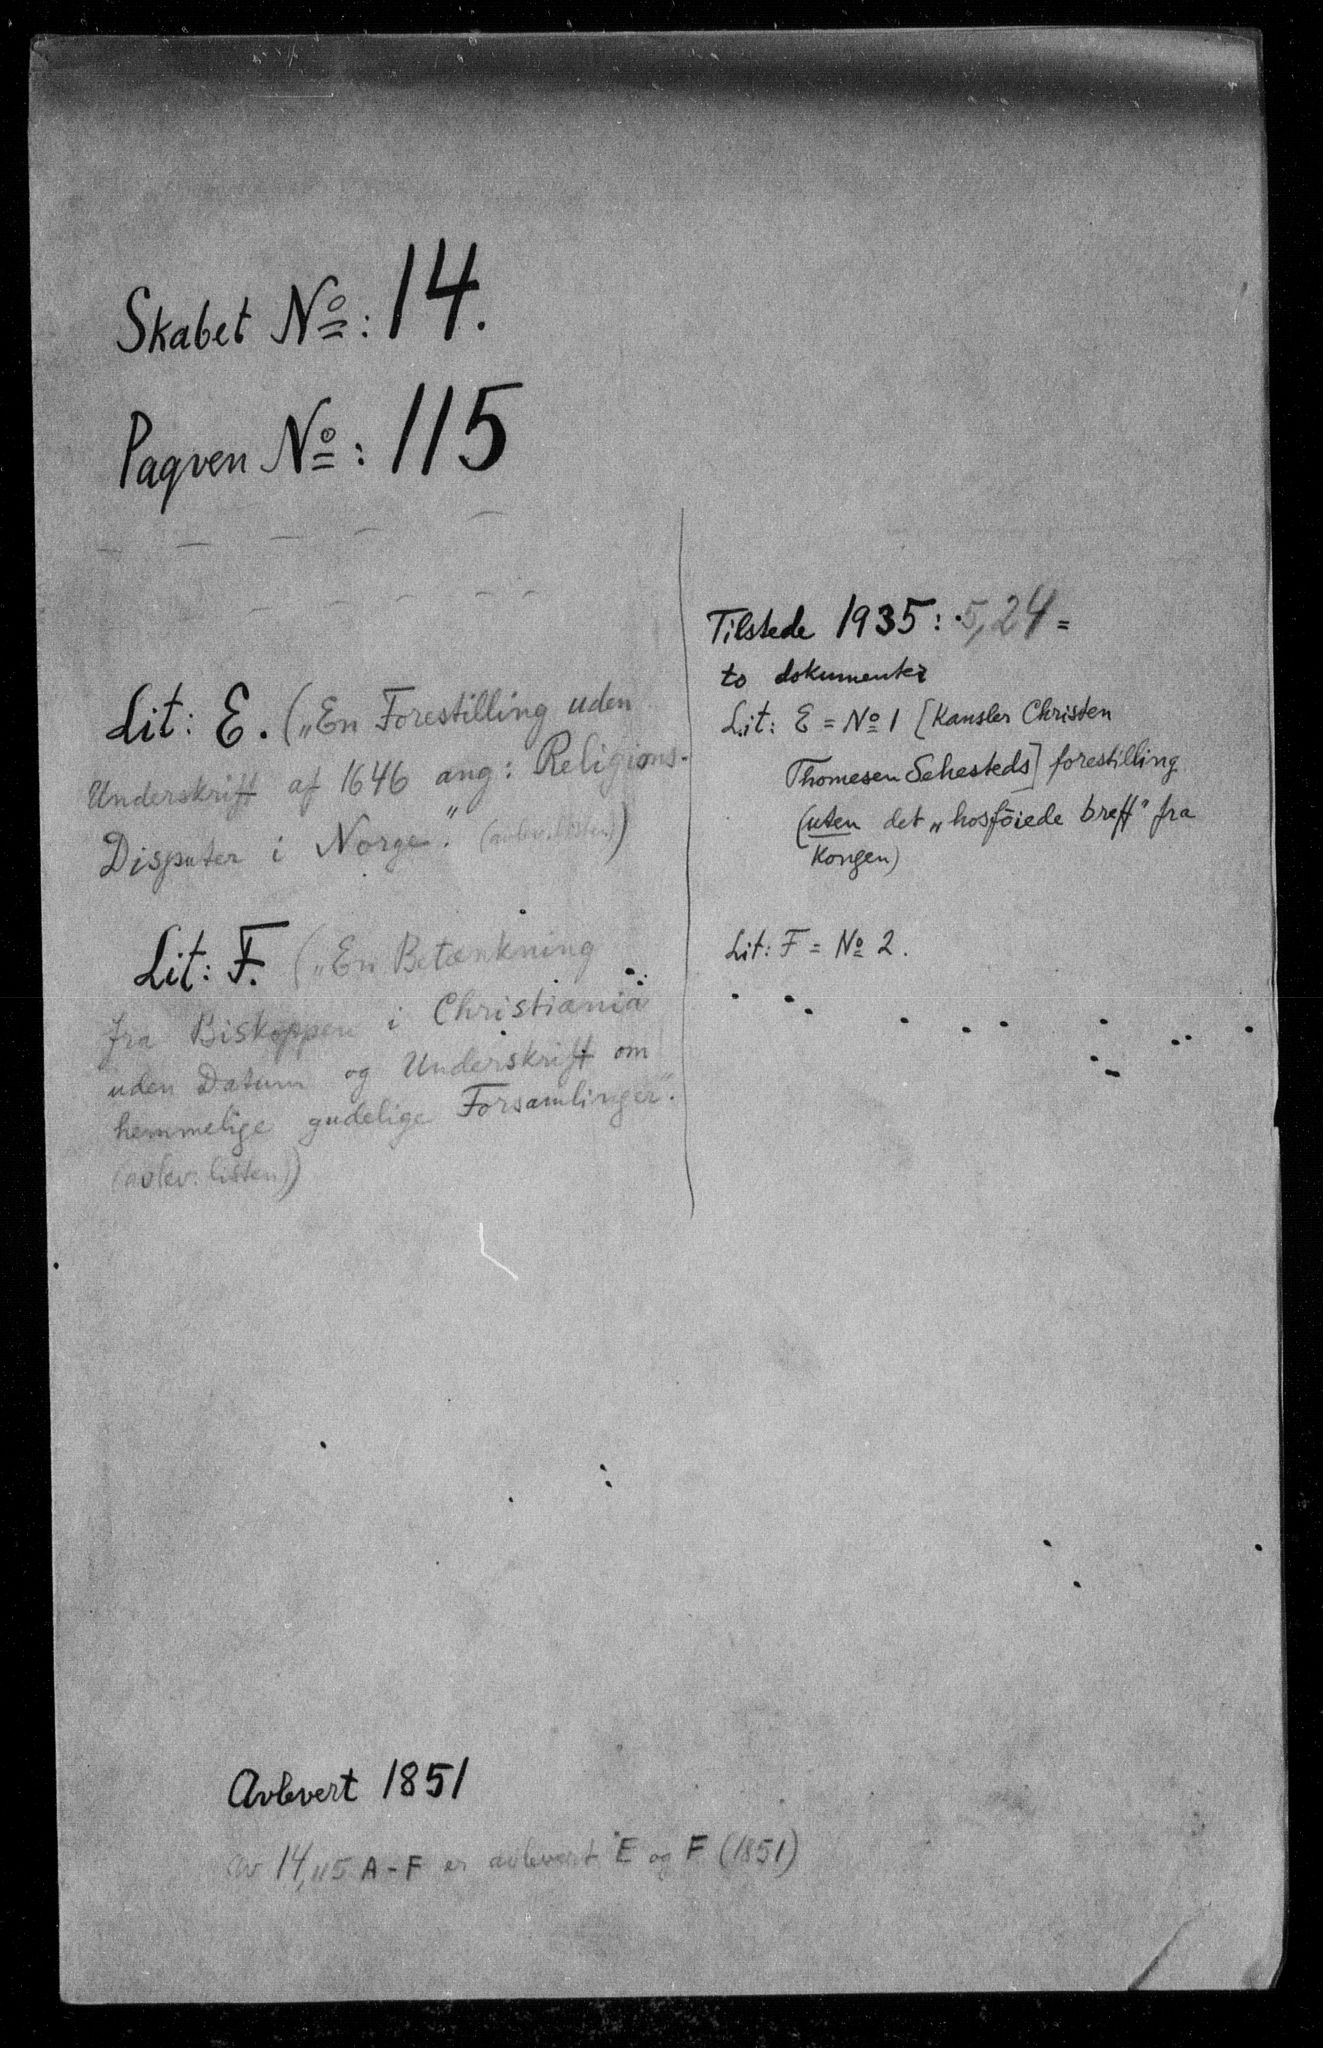 Skabet No: 14.
Paqven No: 115
Lit: E. („En Forestilling uden
Underskrift af 1646 ang: Religions-
Disputer i Norge." (avlev:listen))
Lit: F. („En Betænkning
fra Biskoppen i Christiania
uden Datum og Underskrift om
hemmelige gudelige Forsamlinger".
(avlev: listen))
Tilstede 1935: 5,24 =
to dokumenter
Lit: E = No 1 [Kansler Christen
Thomesen Sehesteds] forestilling
(uten det „hosföiede breff" fra
Kongen)
Lit: F = No 2.
Avlevert 1851
Av 14,115 A-F er avlevert E og F (1851)